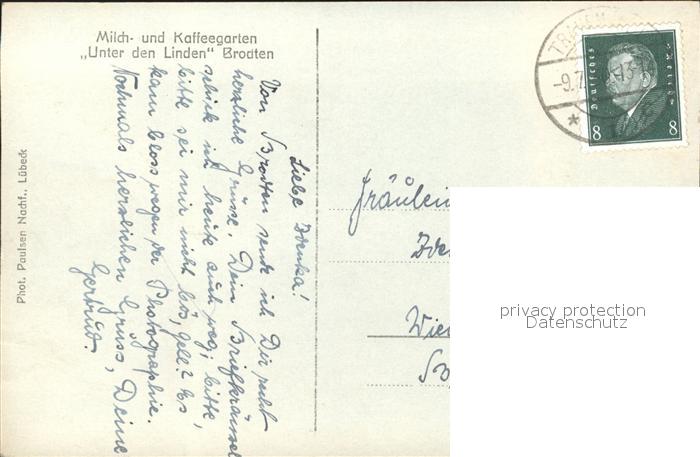 Milch- und Kaffeegarten
„Unter den Linden“ Brodten
Liebe Zdenka!
Von Brodten sende ich Dir recht
herzliche Grüsse. Dein Briefkränsel
schick ich heute auch weg; bitte,
bitte sei mir nicht bös, gell? Es
kam bloss wegen der Photographie.
Nochmals herzlichen Gruss, Deine
Gertrud.
Phot. Paulsen Nachf., Lübeck
-9.7.
Deutsches
Reich
8 8
Fräulein
Zden
Wien
privacy protection
Datenschutz